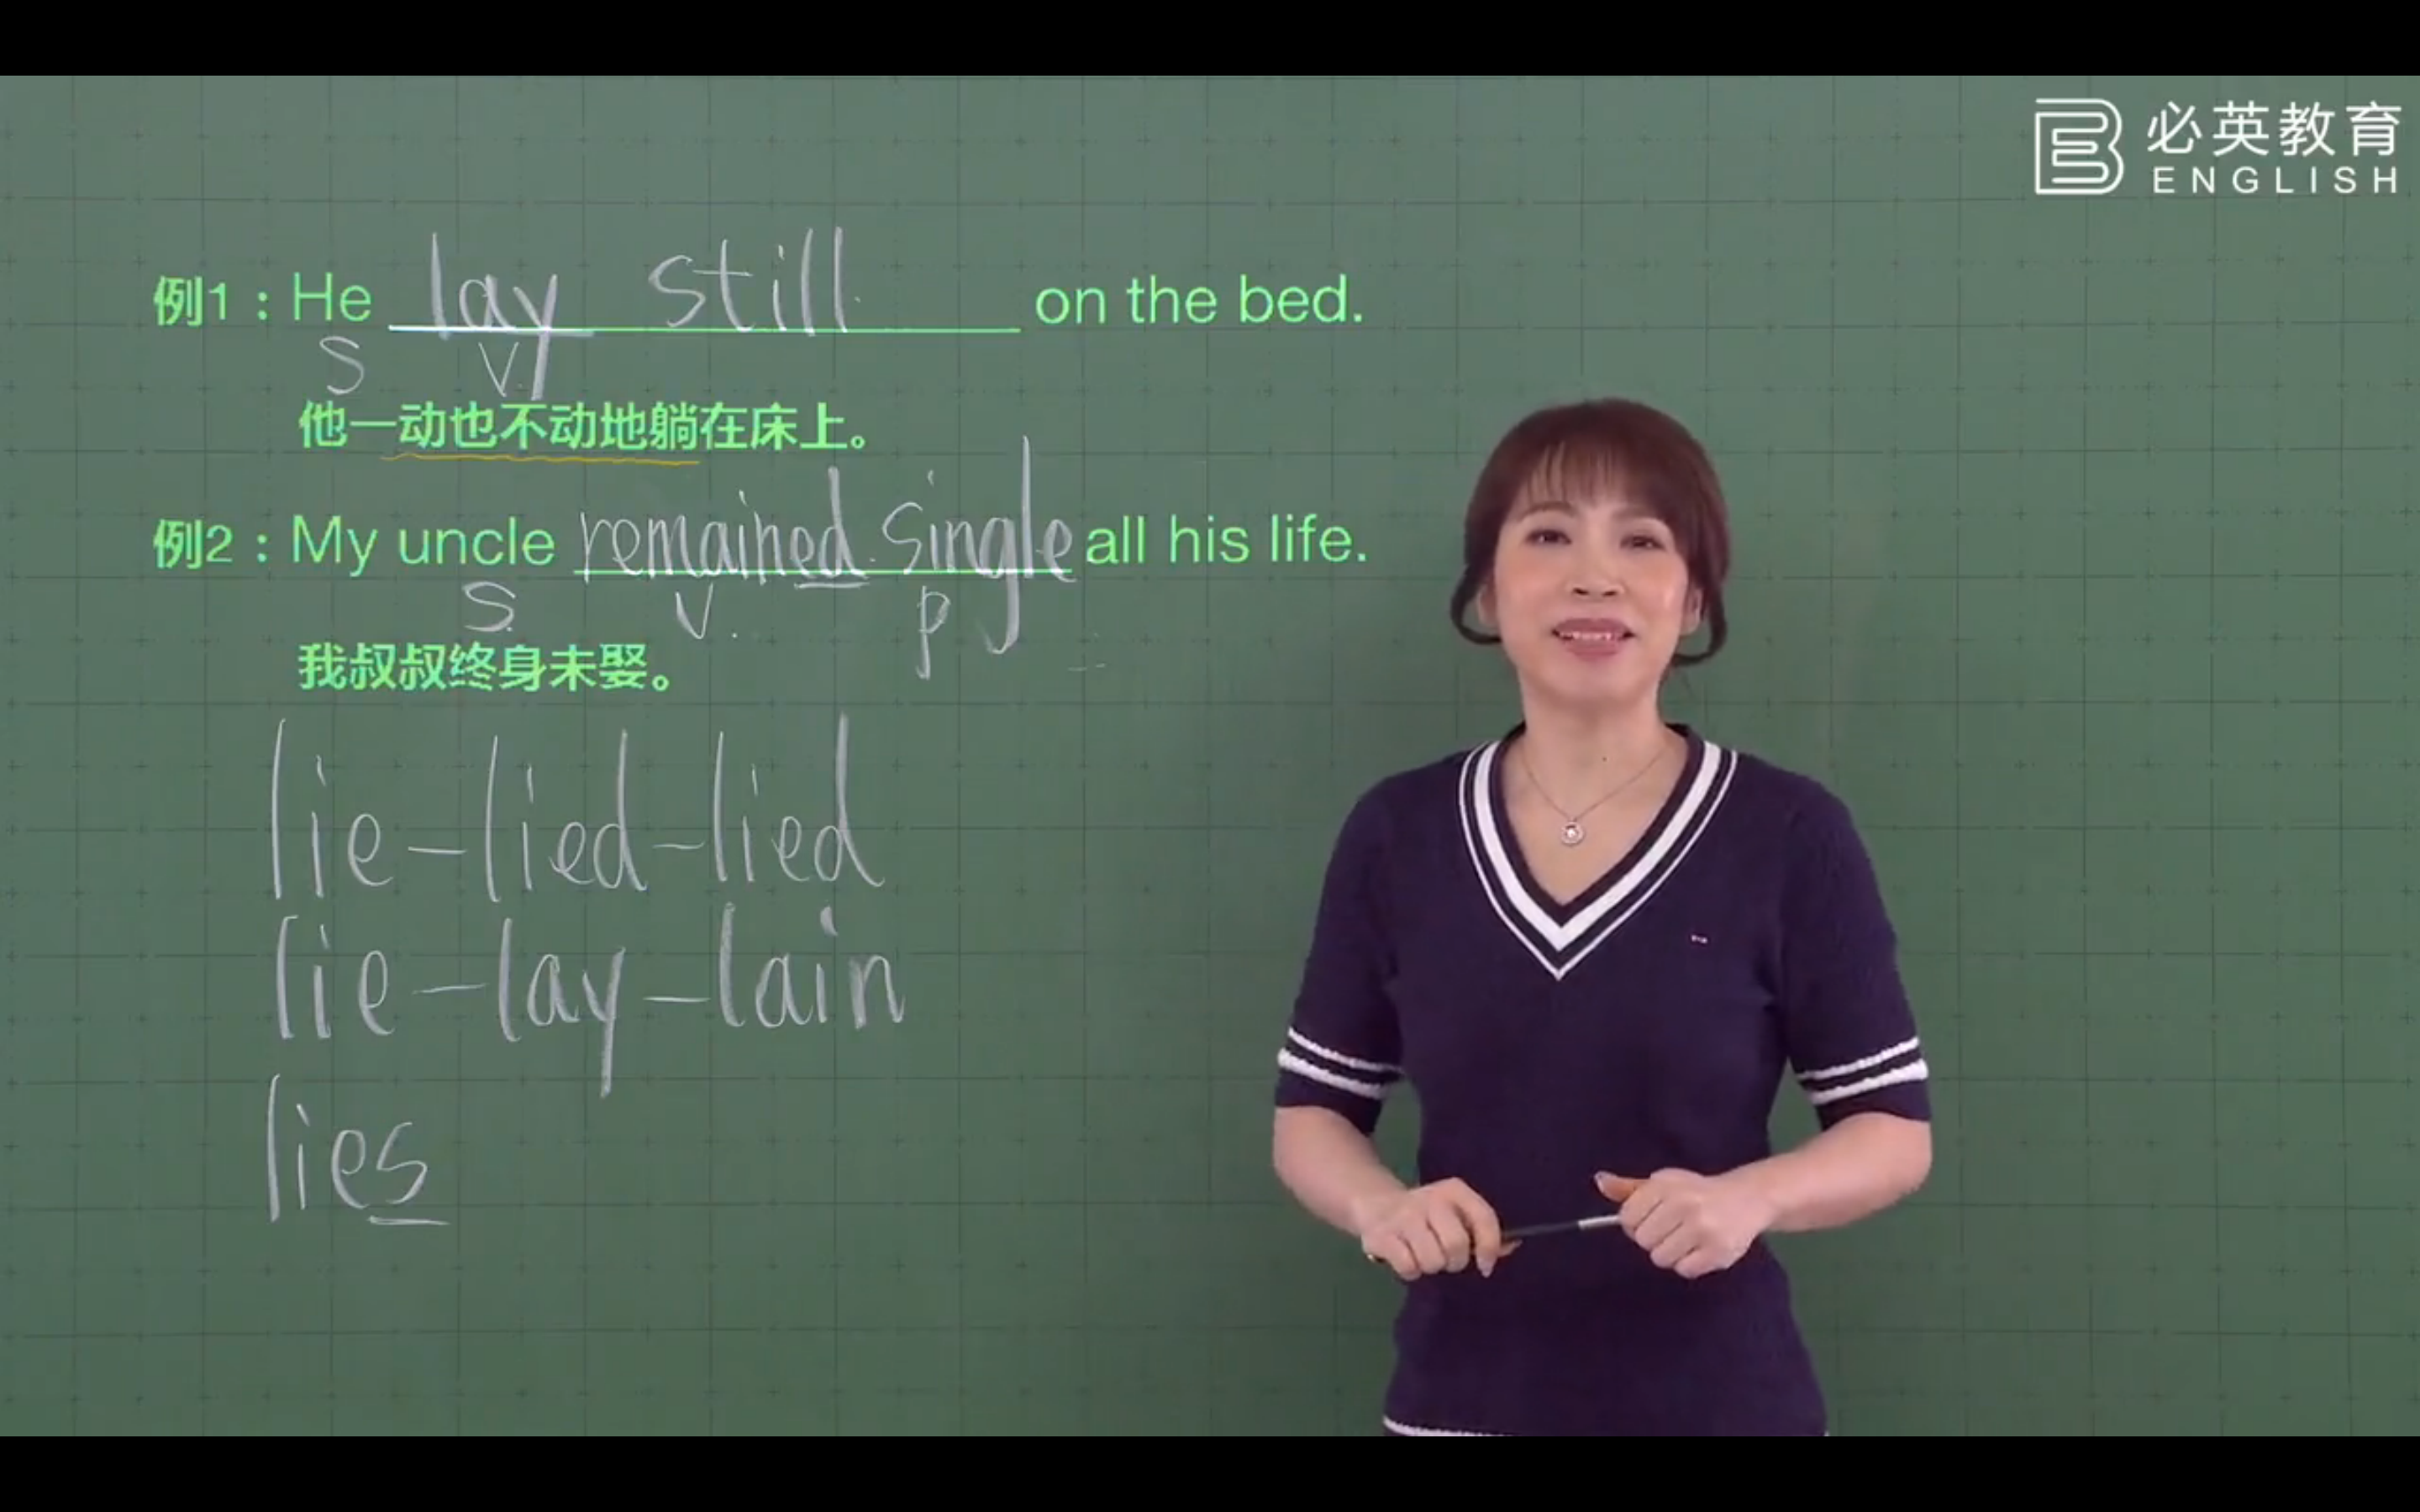 必英教育
ENGLISH
例1：He lay still on the bed.
S V.
他一动也不动地躺在床上。
例2：My uncle remained single all his life.
S. V. P
我叔叔终身未娶。
lie-lied-lied
lie-lay-lain
lies